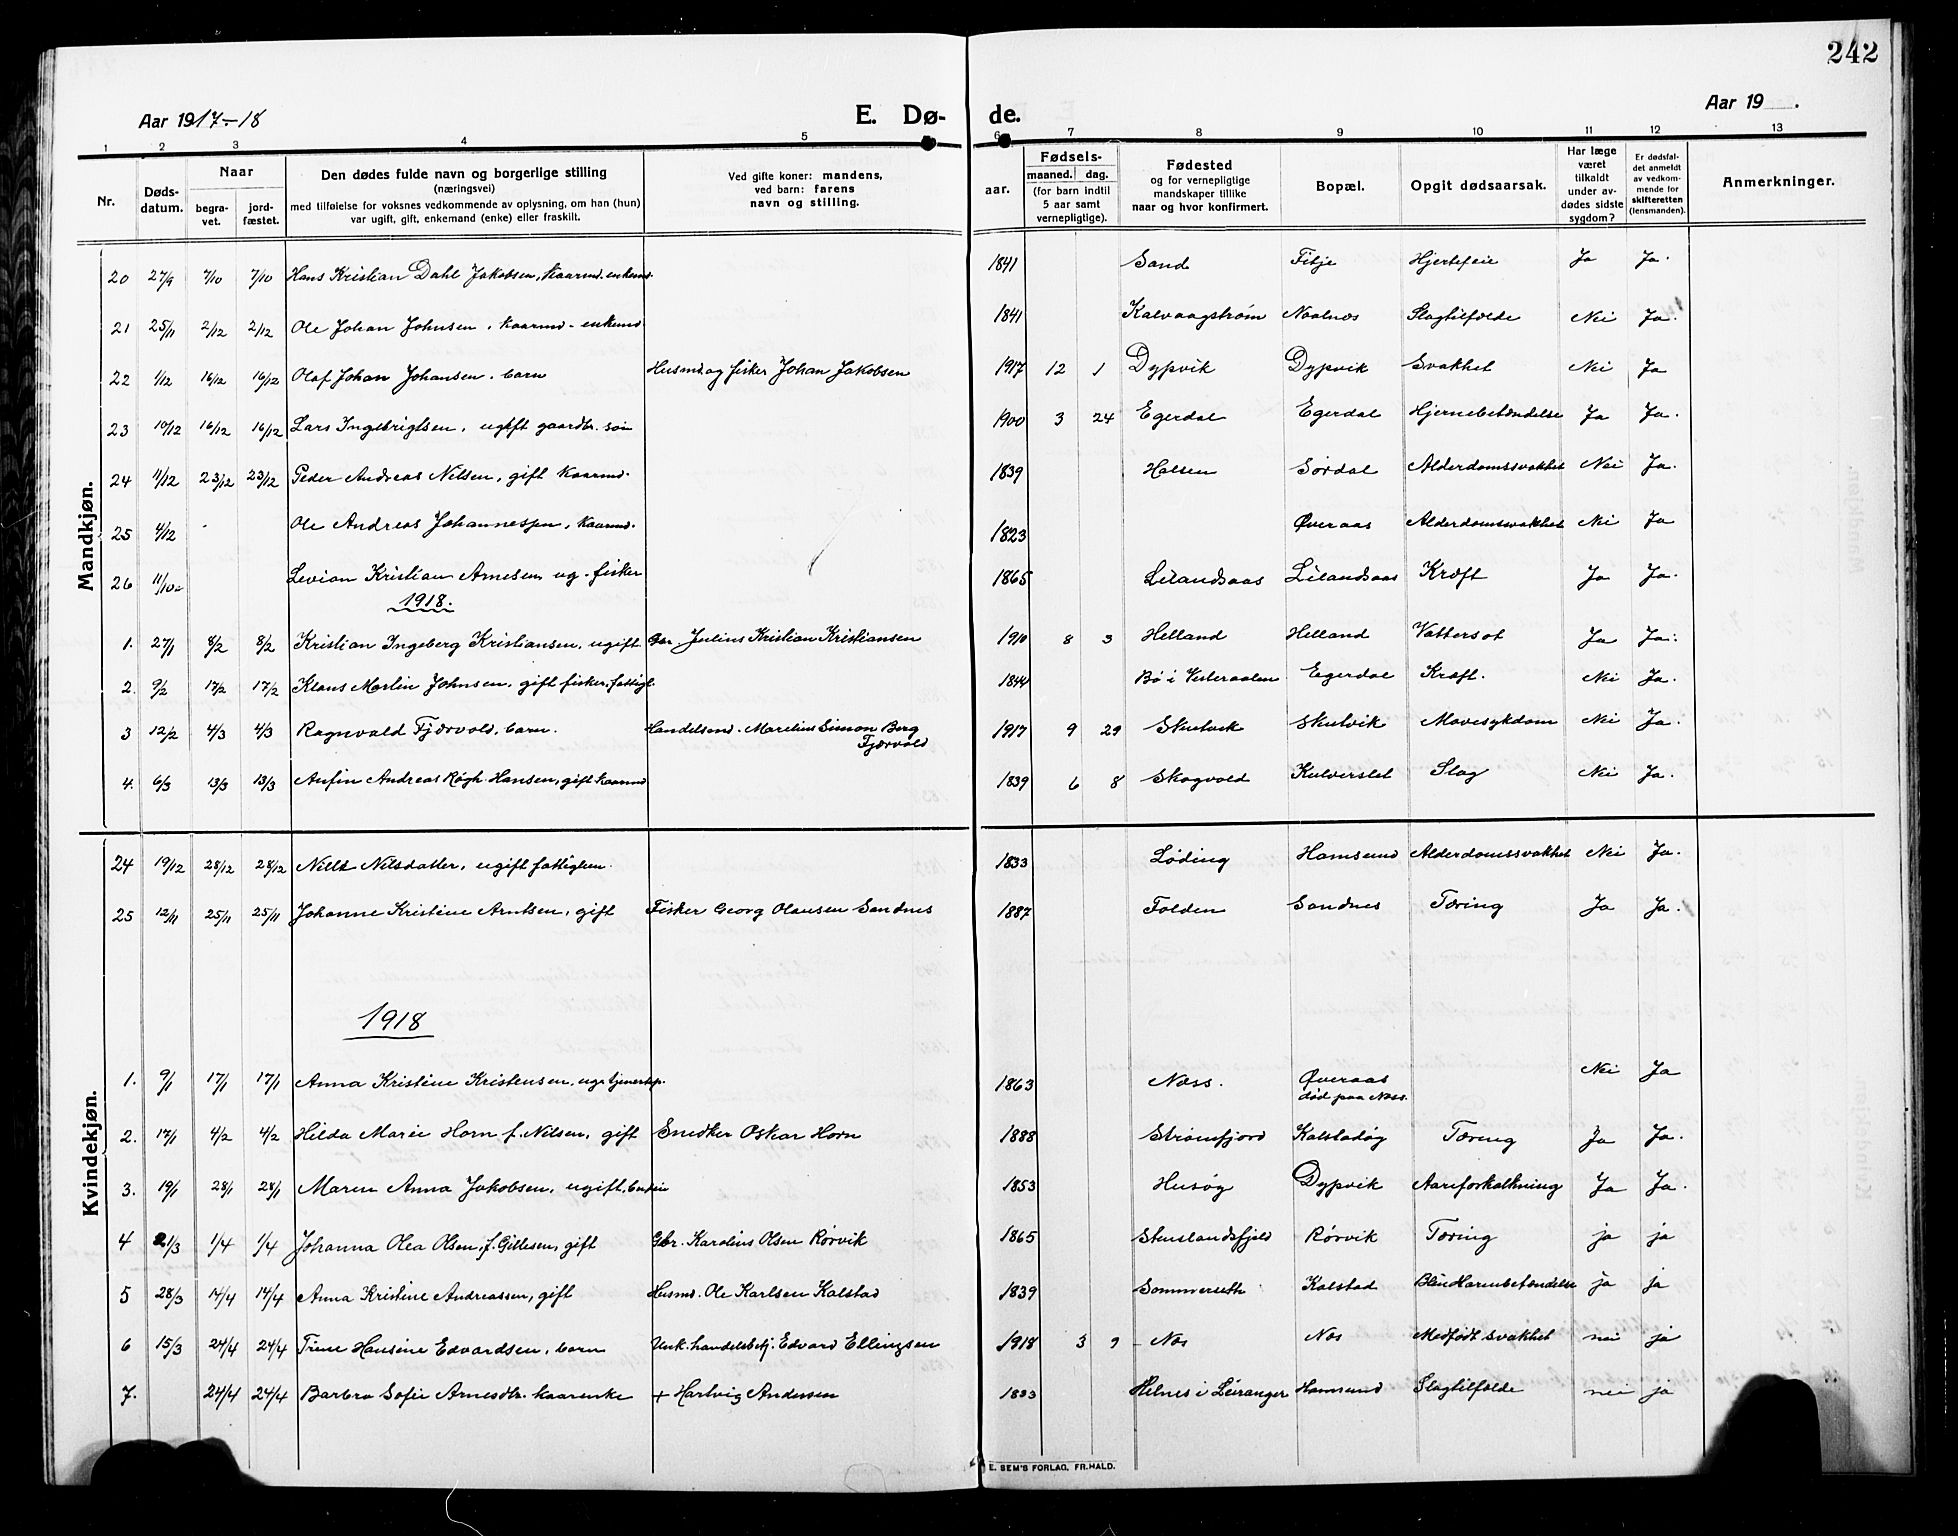 242
Aar 1917-18 E. Dø- de. Aar 19 .
1 2 3 4 5 6 7 8 9 10 11 12 13
Nr. Døds-datum. Naar begra-vet. jord-fæstet. Den dødes fulde navn og borgerlige stilling (næringsvei) med tilføielse for voksnes vedkommende av oplysning, om han (hun) var ugift, gift, enkemand (enke) eller fraskilt. Ved gifte koner: mandens, ved barn: farens navn og stilling. aar. Fødsels- maaned. dag. (for barn indtil 5 aar samt vernepligtige). Fødested og for vernepligtige mandskaper tillike naar og hvor konfirmert. Bopæl. Opgit dødsaarsak. Har læge været tilkaldt under av-dødes sidste sygdom? Er dødsfal-det anmeldt av vedkom-mende for skifteretten (lensmanden). Anmerkninger.
Mandkjøn.
20 27/9 7/10 7/10 Hans Kristian Dahl Jakobsen, kaarmd. enkemd. 1841 Sand Fitje Hjertefeil Ja Ja.
21 25/11 2/12 2/12 Ole Johan Johnsen, kaarmd - enkemd. 1841 Kalvaagstrøm Naalnæs Slagtilfælde Nei Ja.
22 1/12 16/12 16/12 Olaf Johan Johansen. barn Husmd. og fisker Johan Jakobsen 1917 12 1 Dypvik Dypvik Svakhet Nei Ja
23 10/12 16/12 16/12 Lars Ingebrigtsen, ugift gaardbr. søn 1900 3 24 Egerdal Egerdal Hjernebetændelse Ja Ja.
24 11/12 23/12 23/12 Peder Andreas Nilsen, gift kaarmd. 1839 Halsen Sørdal Alderdomssvakhet Nei Ja.
25 4/12 - Ole Andreas Johannessen, kaarmd. 1823 Øveraas Alderdomssvakhet Nei Ja
26 11/10 Levion Kristian Arnesen ug - fisker 1865 Leilandsaas Leilandsaas Kræft Ja Ja.
1918.
1. 27/1 8/2 8/2 Kristian Ingeberg Kristiansen, ugift. Gbr. Julius Kristian Kristiansen 1910 8 3 Helland Helland Vattersot Ja Ja.
2. 9/2 17/2 17/2 Klaus Martin Johnsen, gift fisker, fattigl. 1844 Bø i Vesteraalen Egerdal Kræft. Nei Ja.
3 12/2 4/3 4/3 Ragnvald Fjærvold, barn. Handelsmd. Marelius Simon Berg Fjærvold 1917 9 29 Skutvik Skutvik Mavesykdom Nei Ja.
4. 6/3 13/3 13/3 Anfin Andreas Røgh Hansen, gift kaarmd 1839 6 8 Skogvold Kulverslet Slag Nei Ja.
Kvindekjøn.
24 19/12 28/12 28/12 Nilsdatter, ugift fattiglem. 1833 Løding Hamsund Alderdomssvakhet Nei Ja.
25 12/11 25/11 25/11 Johanne Kristine Arntsen, gift Fisker Georg Olausen Sandnes 1887 Folden Sandnes Tæring Ja Ja.
1918
1. 9/1 17/1 17/1 Anna Kristine Kristensen, ug. tjenestep. 1863 Næss. Øveraas død paa Næss. Nei Ja
2. 17/1 4/2 4/2 Hilda Marie Horn f. Nilsen, gift Snedker Oskar Horn 1888 Strømfjord Kalstadøg Tæring Ja Ja.
3. 19/1 28/1 28/1 Maren Anna Jakobsen, ugift, 1853 Husøy Dypvik Aareforkalkning Ja Ja.
4 21/3 1/4 1/4 Johanna Olea Olsen, f. Gillesen, gift Gbr. Karolius Olsen Rørvik 1865 Stenslandsfjeld Rørvik Tæring ja ja
5 28/3 14/4 14/4 Anna Kristine Andreassen, gift Husmd. Ole Karlsen Kalstad 1839 Sommerseth Kalstad Blindtarmbetændelse ja ja
6 15/3 24/4 24/4 Trine Hansine Edvardsen, barn Unk. handelsbetj. Edvard Ellingsen 1918 3 9 Næs Næs Medfødt svakhet nei ja
7. 24/4 24/4 Barbro Sofie Arnesdtr. kaarenke + Hartvig Andersen 1833 Helnes i Leiranger Hamsund Slagtilfælde nei ja
E. SEM'S FORLAG, FR.HALD.